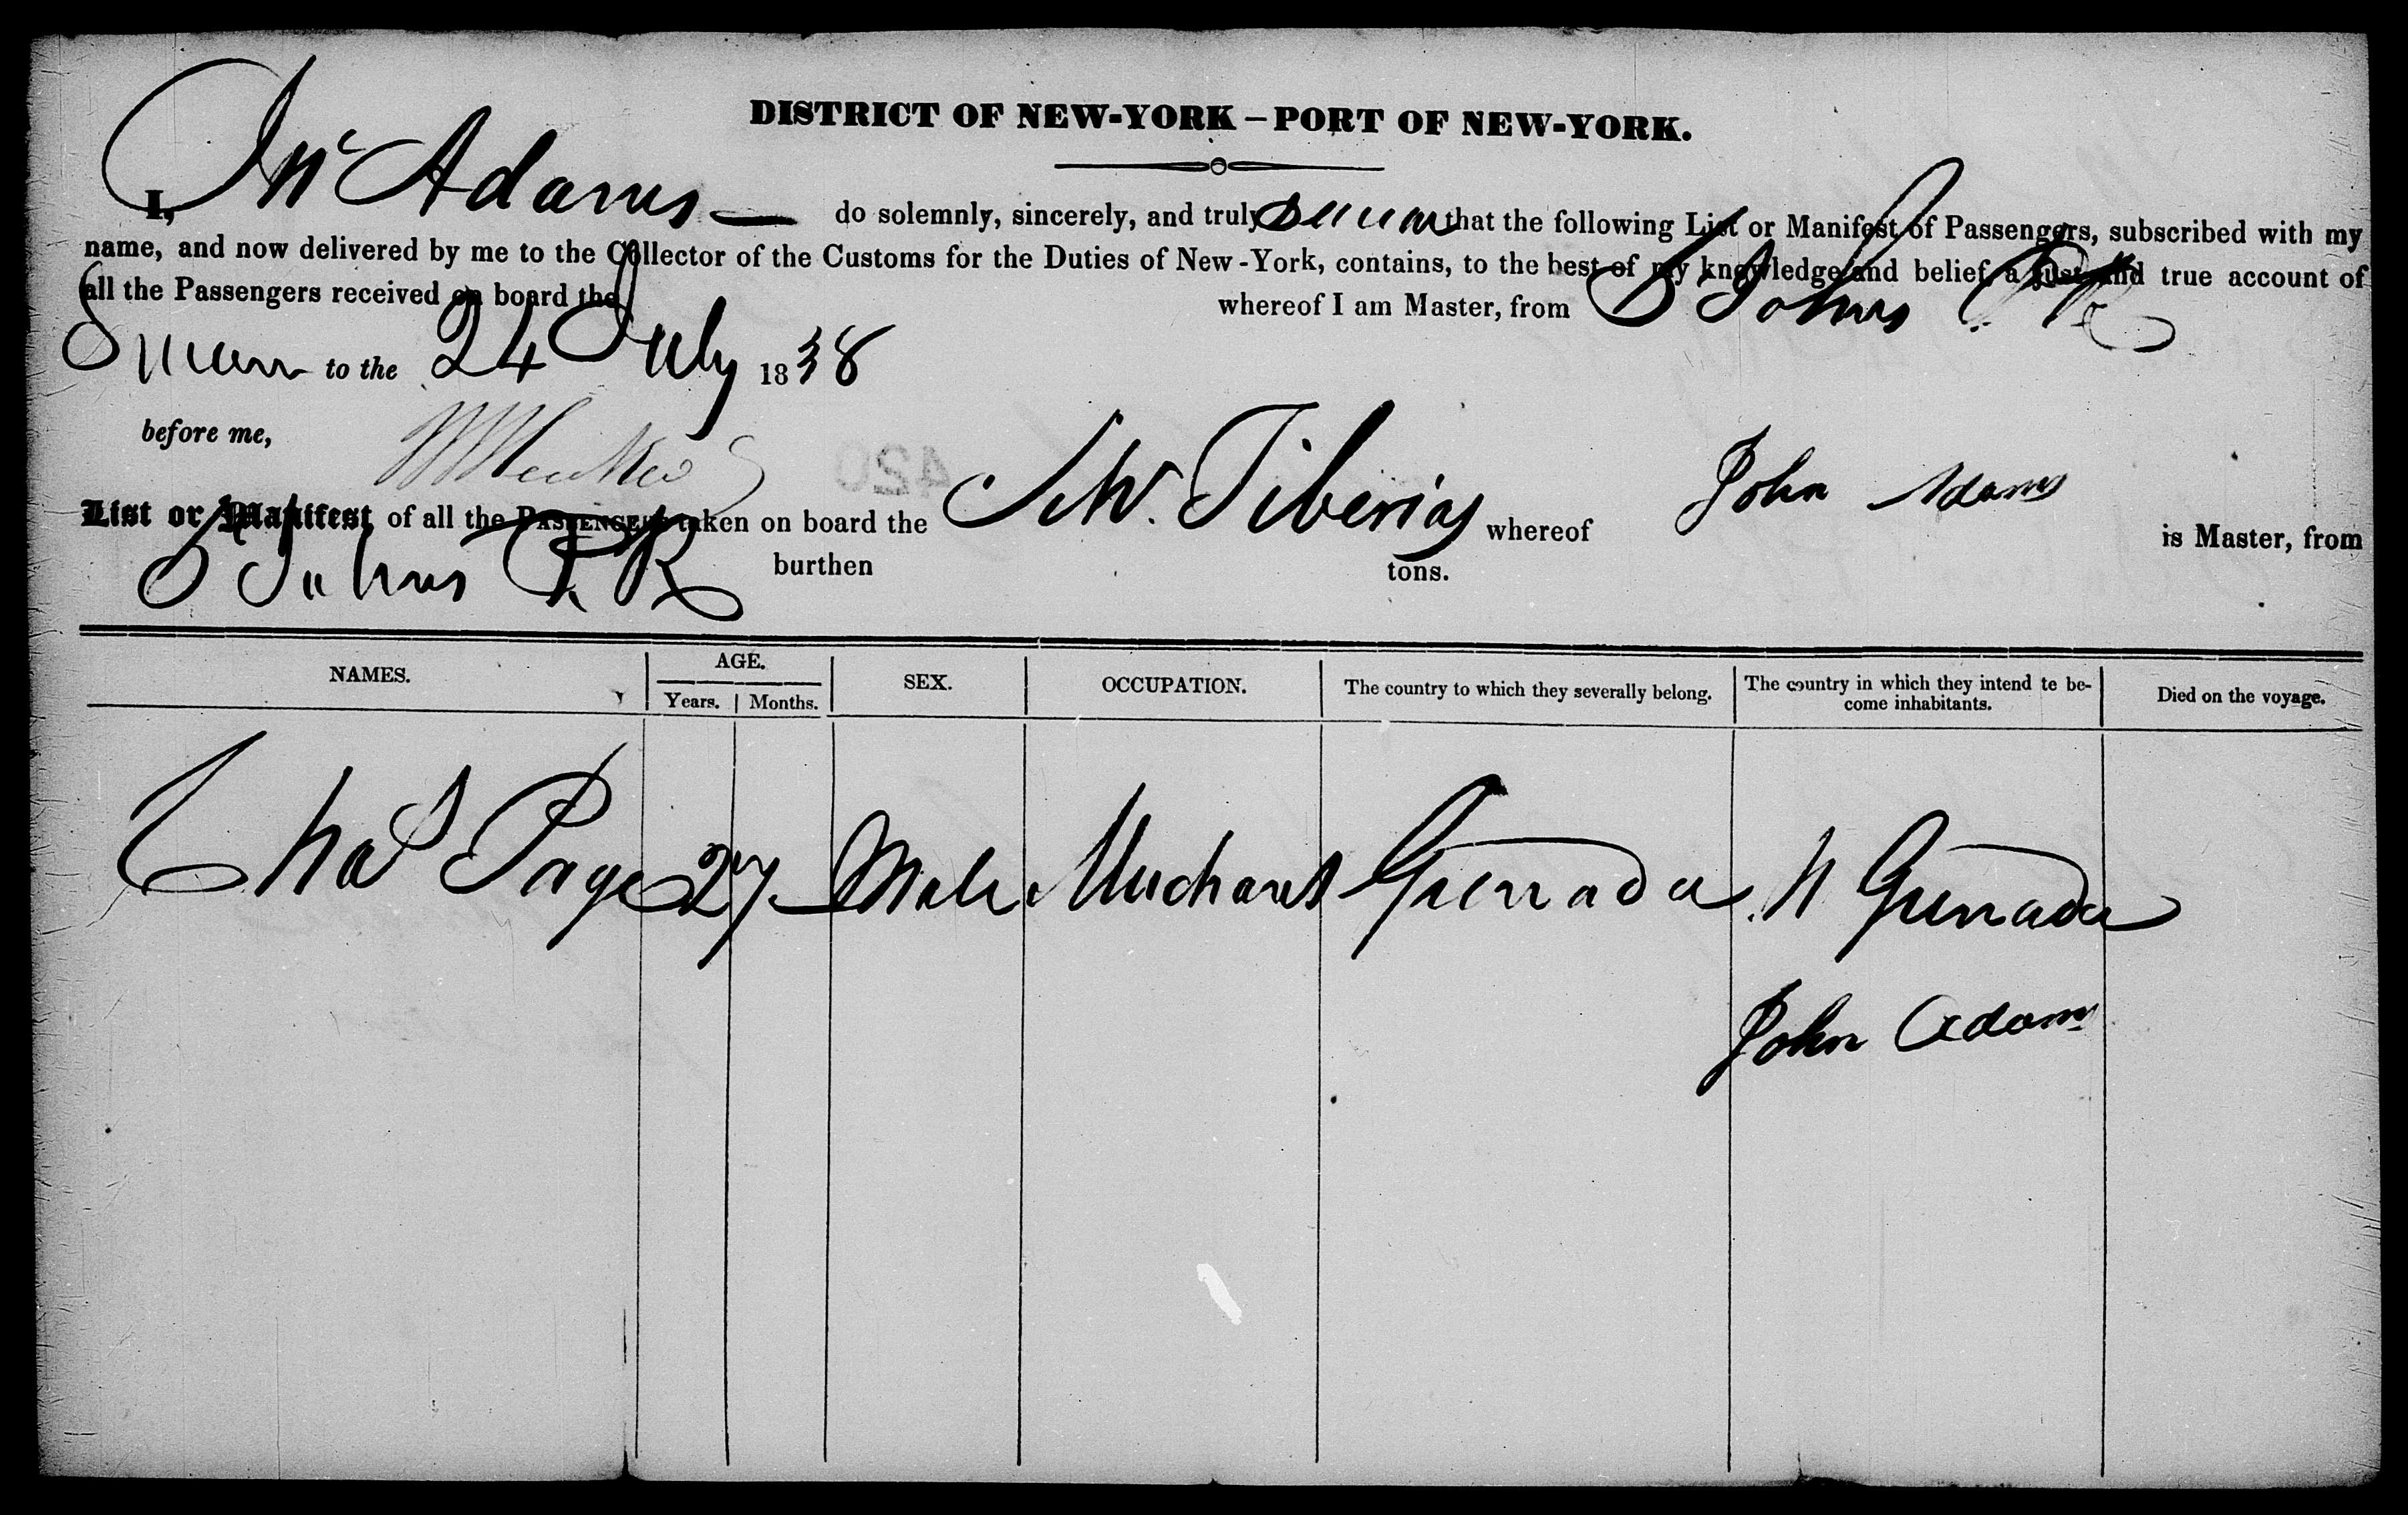 DISTRICT OF NEW-YORK – PORT OF NEW-YORK.
I, Jno Adams — do solemnly, sincerely, and truly swear that the following List or Manifest of Passengers, subscribed with my
name, and now delivered by me to the Collector of the Customs for the Duties of New-York, contains, to the best of my knowledge and belief, a just and true account of
all the Passengers received on board the whereof I am Master, from St Johns P R
Sworn to the 24 July 1838
before me,
List or Manifest of all the PASSENGERS taken on board the Schr. Tiberias whereof John Adams is Master, from
St Johns P. R burthen tons.
NAMES. AGE. Years. Months. SEX. OCCUPATION. The country to which they severally belong. The country in which they intend te be-come inhabitants. Died on the voyage.
Chas Page 27 Male Merchant Grenada N Grenada
John Adams
420